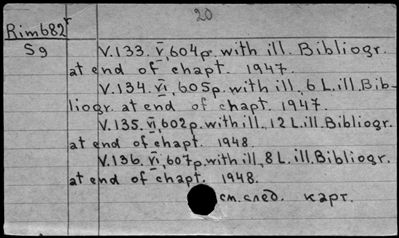 20
Rim682r
Sg
V.133. VI, 604p. with ill. Bibliogr.
at end of chapt. 1947.
V.134. VI, 605p. with ill., 6 L. ill. Bib-
liogr. at end of chapt. 1947.
V.135. VI, 602p. with ill., 12 L. ill. Bibliogr.
at end of chapt. 1948.
V.136. VI, 607p. with ill., 8 L. ill. Bibliogr.
at end of chapt. 1948.
см. след. карт.